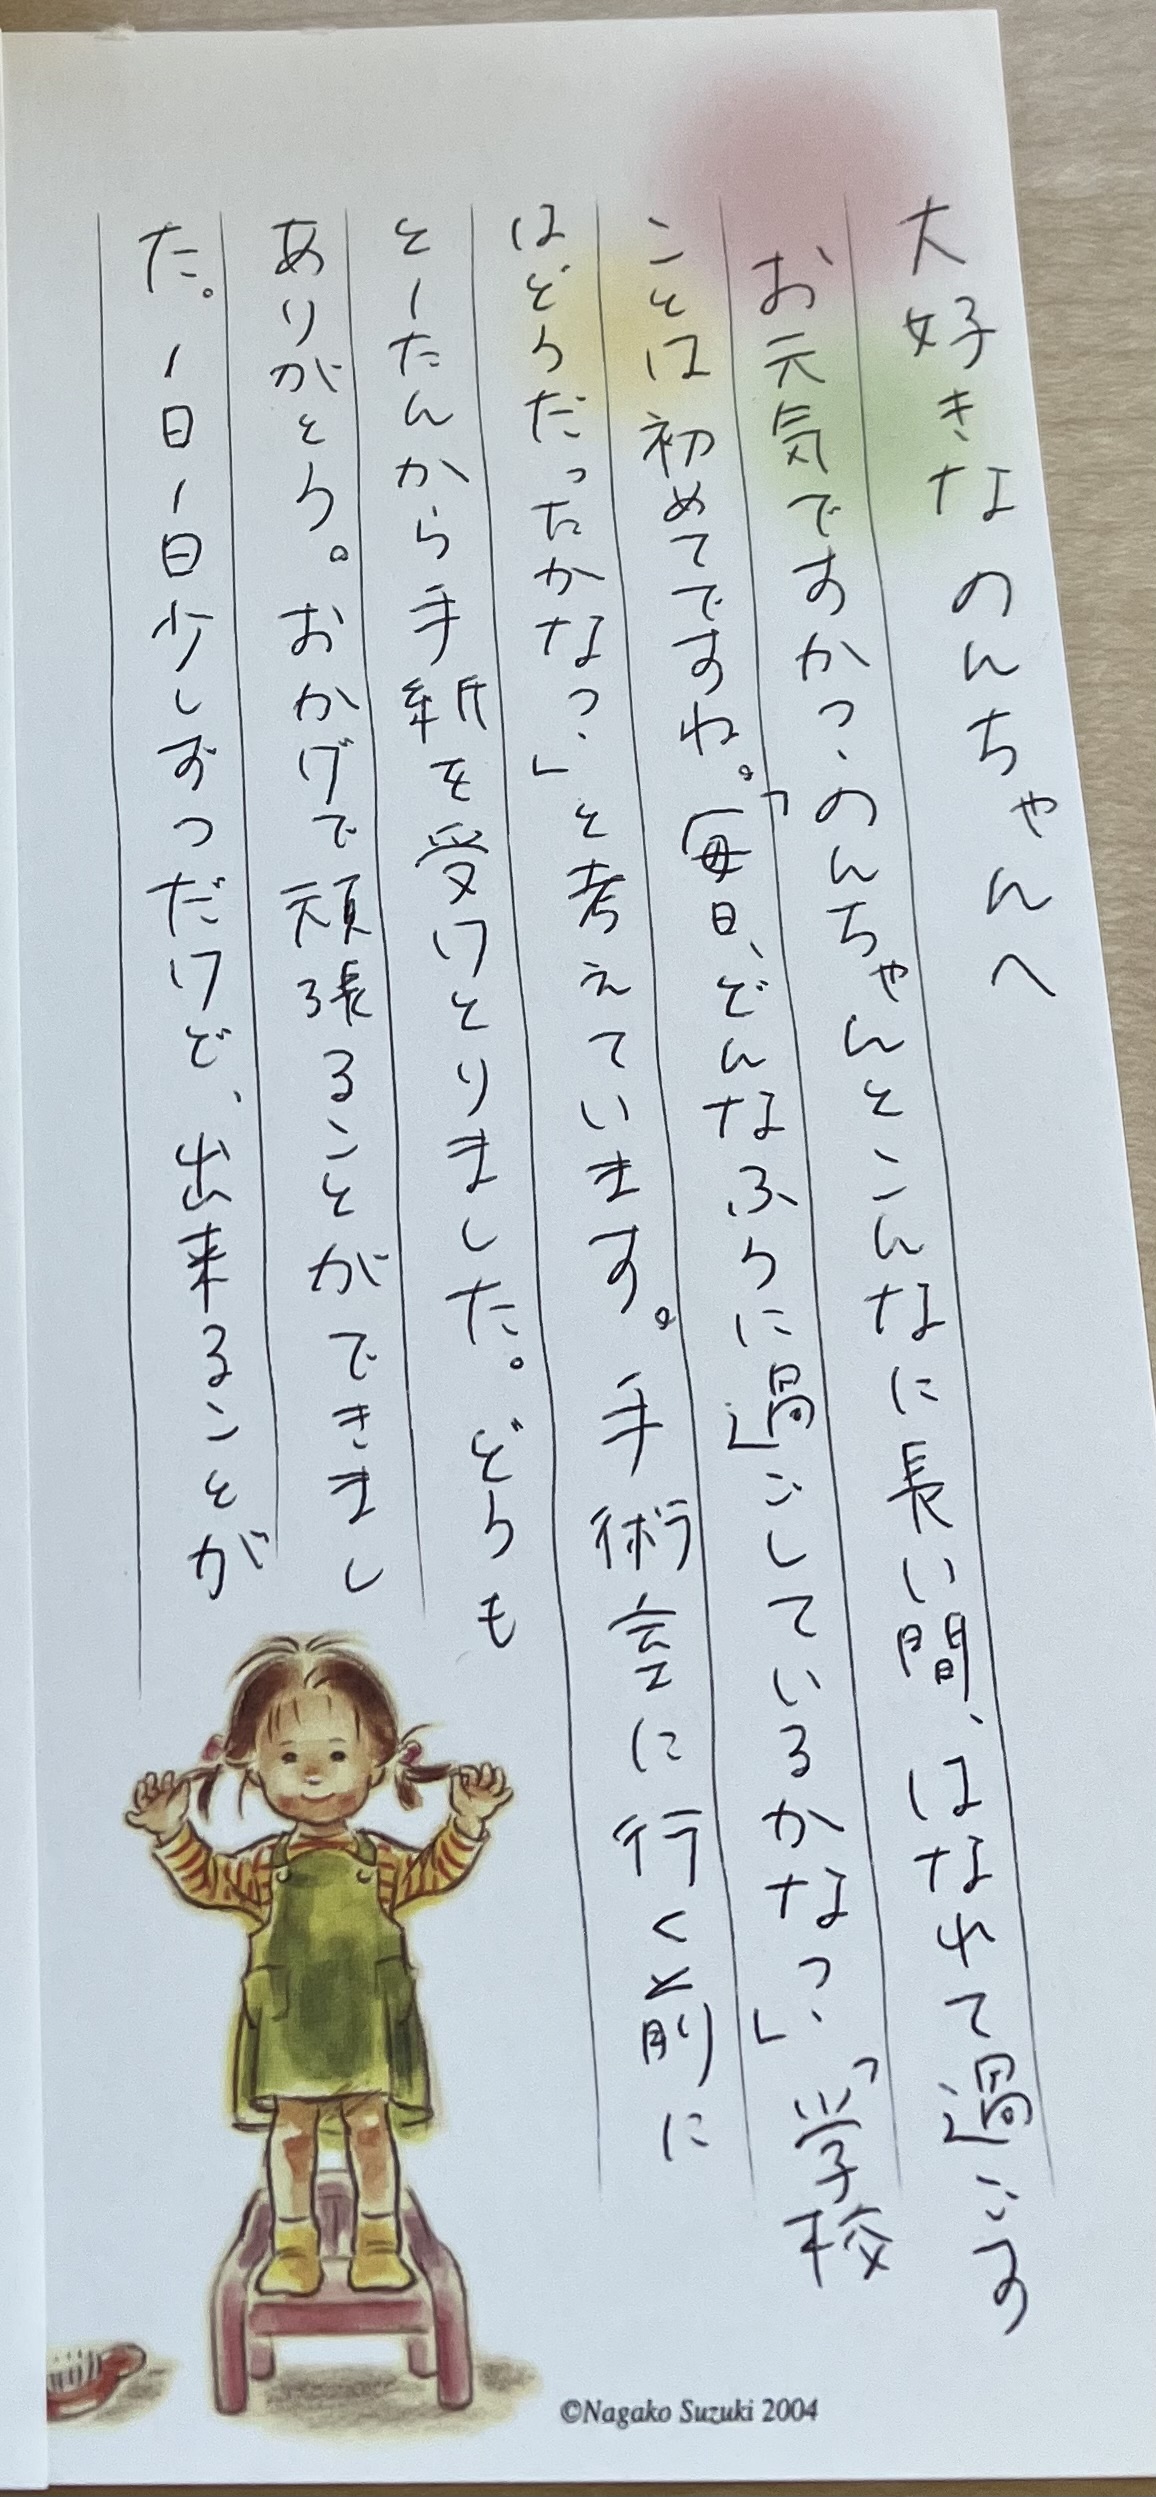 大好きなのんちゃんへ
お元気ですか？のんちゃんとこんなに長い間、はなれて過ごす
ことは初めてですね。「毎日、どんなふうに過ごしているかな？」「学校
はどうだったかな？」と考えています。手術室に行く前に
とーたんから手紙を受けとりました。どうも
ありがとう。おかげで頑張ることができまし
た。1日1日少しずつだけど、出来ることが
©Nagako Suzuki 2004